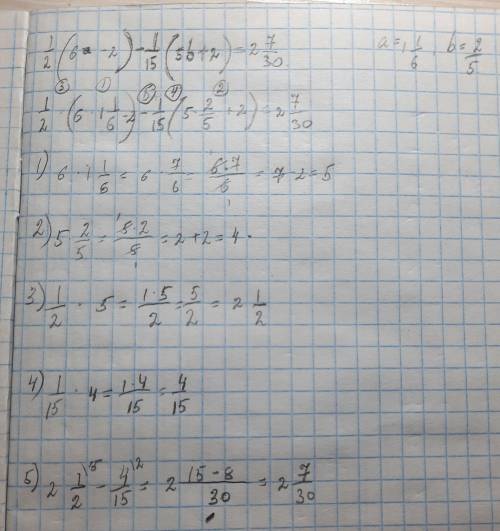 1/2 (6a - 2) - 1/15 (5b + 2) = 2 7/30   a = 1 1/6   b = 2/5
③ ① ⑤ ④ ②
1/2 · (6 · 1 1/6 - 2) - 1/15 (5 · 2/5 + 2) = 2 7/30
1) 6 · 1 1/6 = 6 · 7/6 = 6·7/6 = 7 - 2 = 5
2) 5 2/5 = 5·2/5 = 2 + 2 = 4.
3) 1/2 · 5 = 1·5/2 = 5/2 = 2 1/2
4) 1/15 · 4 = 1·4/15 = 4/15
5) 2 1/2 ⁾¹⁵ - 4/15 ⁾² = 2 15-8/30 = 2 7/30